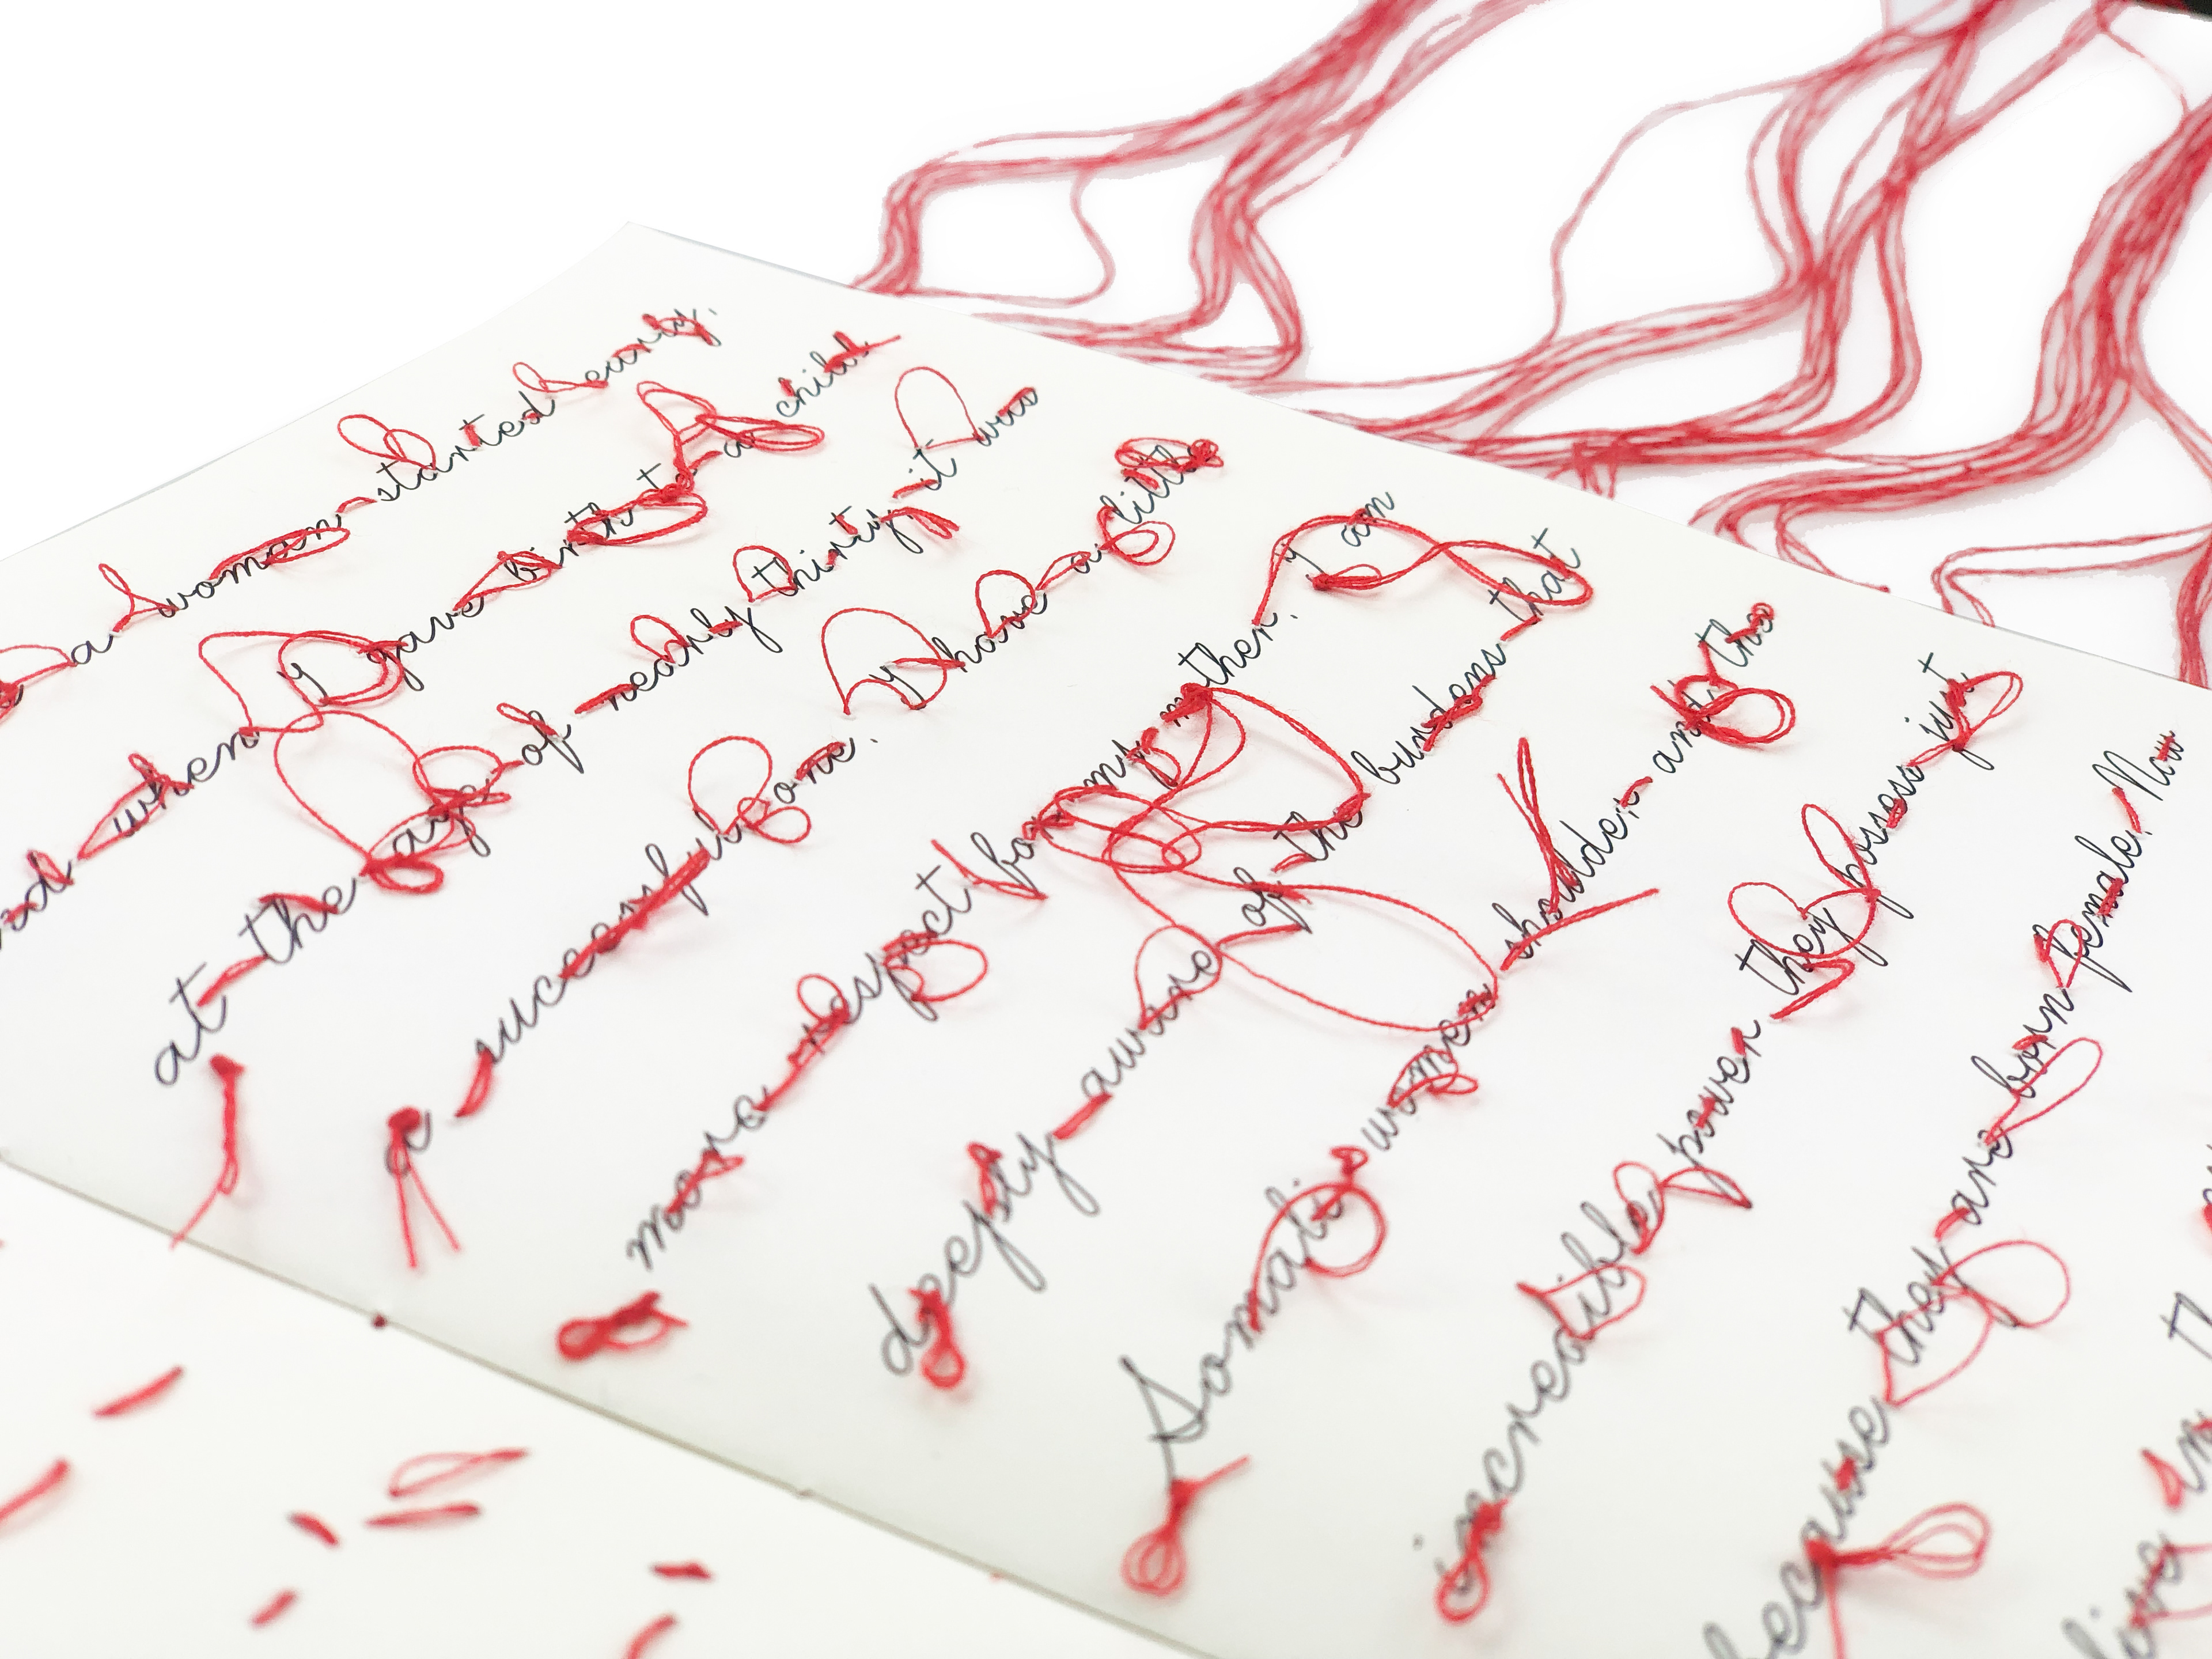 a woman started early.
when I gave birth to a child
at the age of nearly thirty, it was
a successful one. I have a little
more respect for my mother. I am
deeply aware of the burdens that
Somali women shoulder and the
incredible power they possess just
because they are born female. Now
live